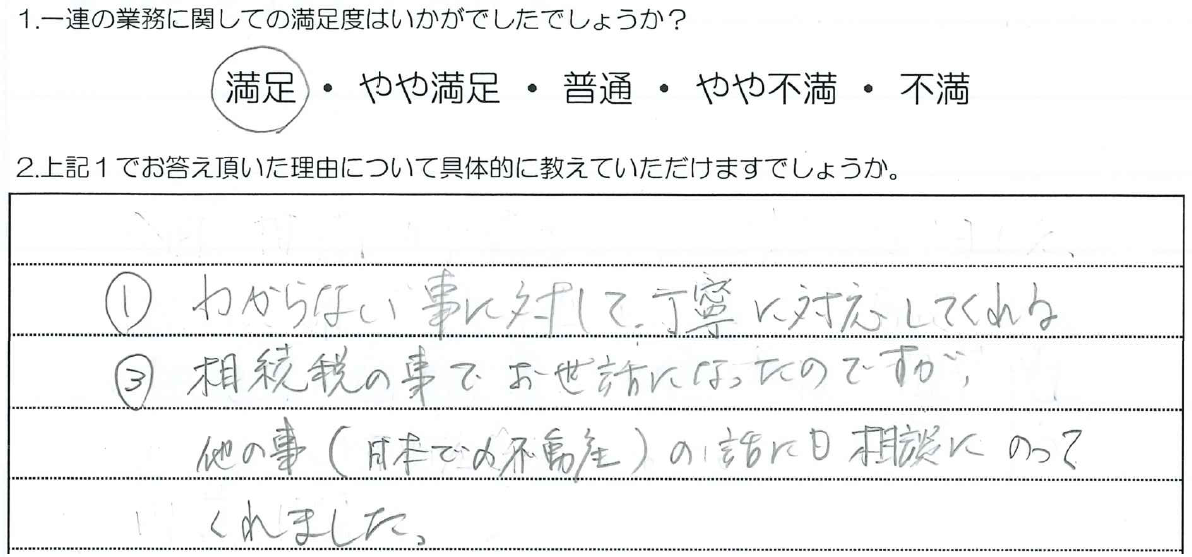 1.一連の業務に関しての満足度はいかがでしたでしょうか？
満足・やや満足・普通・やや不満・不満
2.上記１でお答え頂いた理由について具体的に教えていただけますでしょうか。
① わからない事に対して、丁寧に対応してくれる
③ 相続税の事でお世話になったのですが、
他の事（日本での不動産）の話にも相談にのって
くれました。